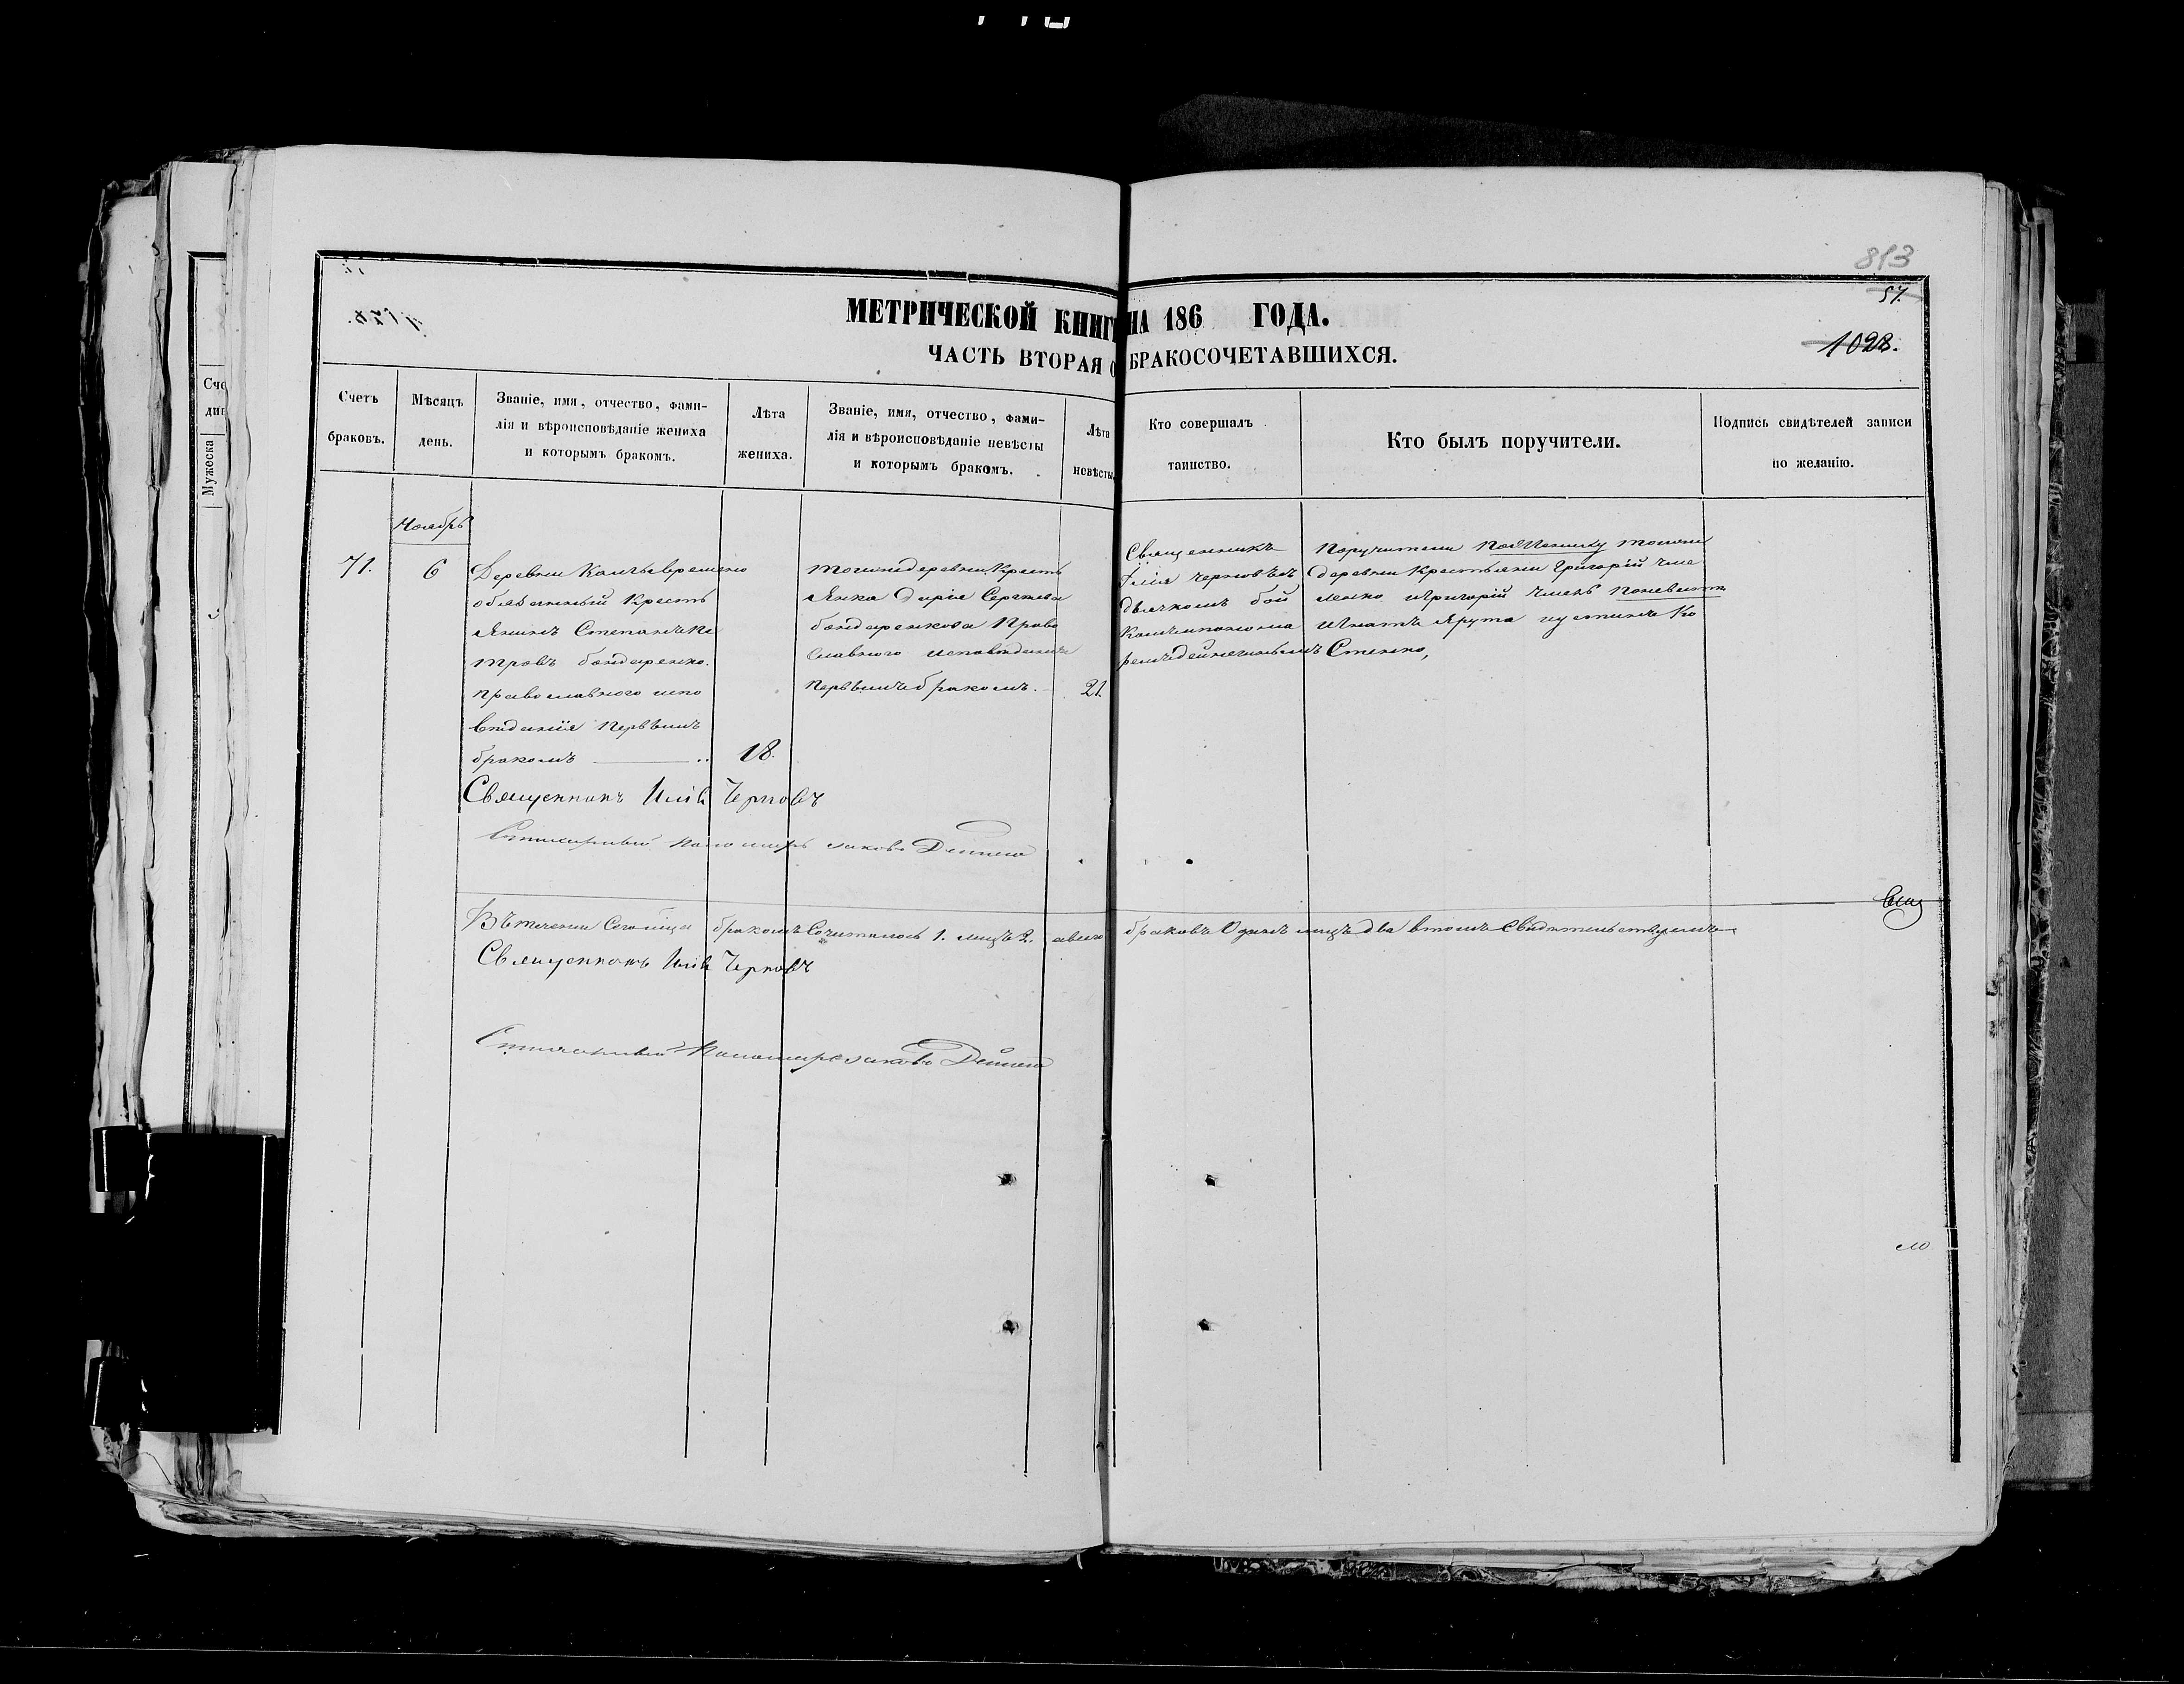 813
57.
1028.
МЕТРИЧЕСКОЙ КНИГ НА 186 ГОДА.
ЧАСТЬ ВТОРАЯ О БРАКОСОЧЕТАВШИХСЯ.
Счетъ браковъ.
Мѣсяцъ день.
Званіе, имя, отчество, фами-
лія и вѣроисповѣданіе жениха
и которымъ бракомъ.
Лѣта жениха.
Званіе, имя, отчество, фами-
лія и вѣроисповѣданіе невѣсты
и которымъ бракомъ.
Лѣта невѣсты
Кто совершалъ таинство.
Кто былъ поручители.
Подпись свидѣтелей записи
по желанію.
Мужеска
Ноябрь
71.
6
Деревни временно
обязанный кресть
янинъ Степанъ Пе
тровъ бондаренко.
православного испо
вѣданія первымъ
бракомъ
18.
тоижедеревни Кресть
янка Дарія Сергѣева
бондаренкова Право
славного исповѣданія
первымъ бракомъ.
21.
Священникъ
Илія Черновъ съ
дьячкомъ
Поручители по жениху тоижъ
деревни крестьяни Григорій
ленко Григорій поневѣстѣ
Игнатъ Ярута иустинъ Ко
Стенко,
Священникъ Илія Черновъ
Стихарный Пономарь Іаковъ
Вътечении Сегомѣсяца бракомъ Сочиталось 1. лицъ 2. браковъ Одинъ лицъ два втомъ Свидѣтельствуемъ
Священникъ Илія Черновъ
Стихарный Пономарь Іаковъ